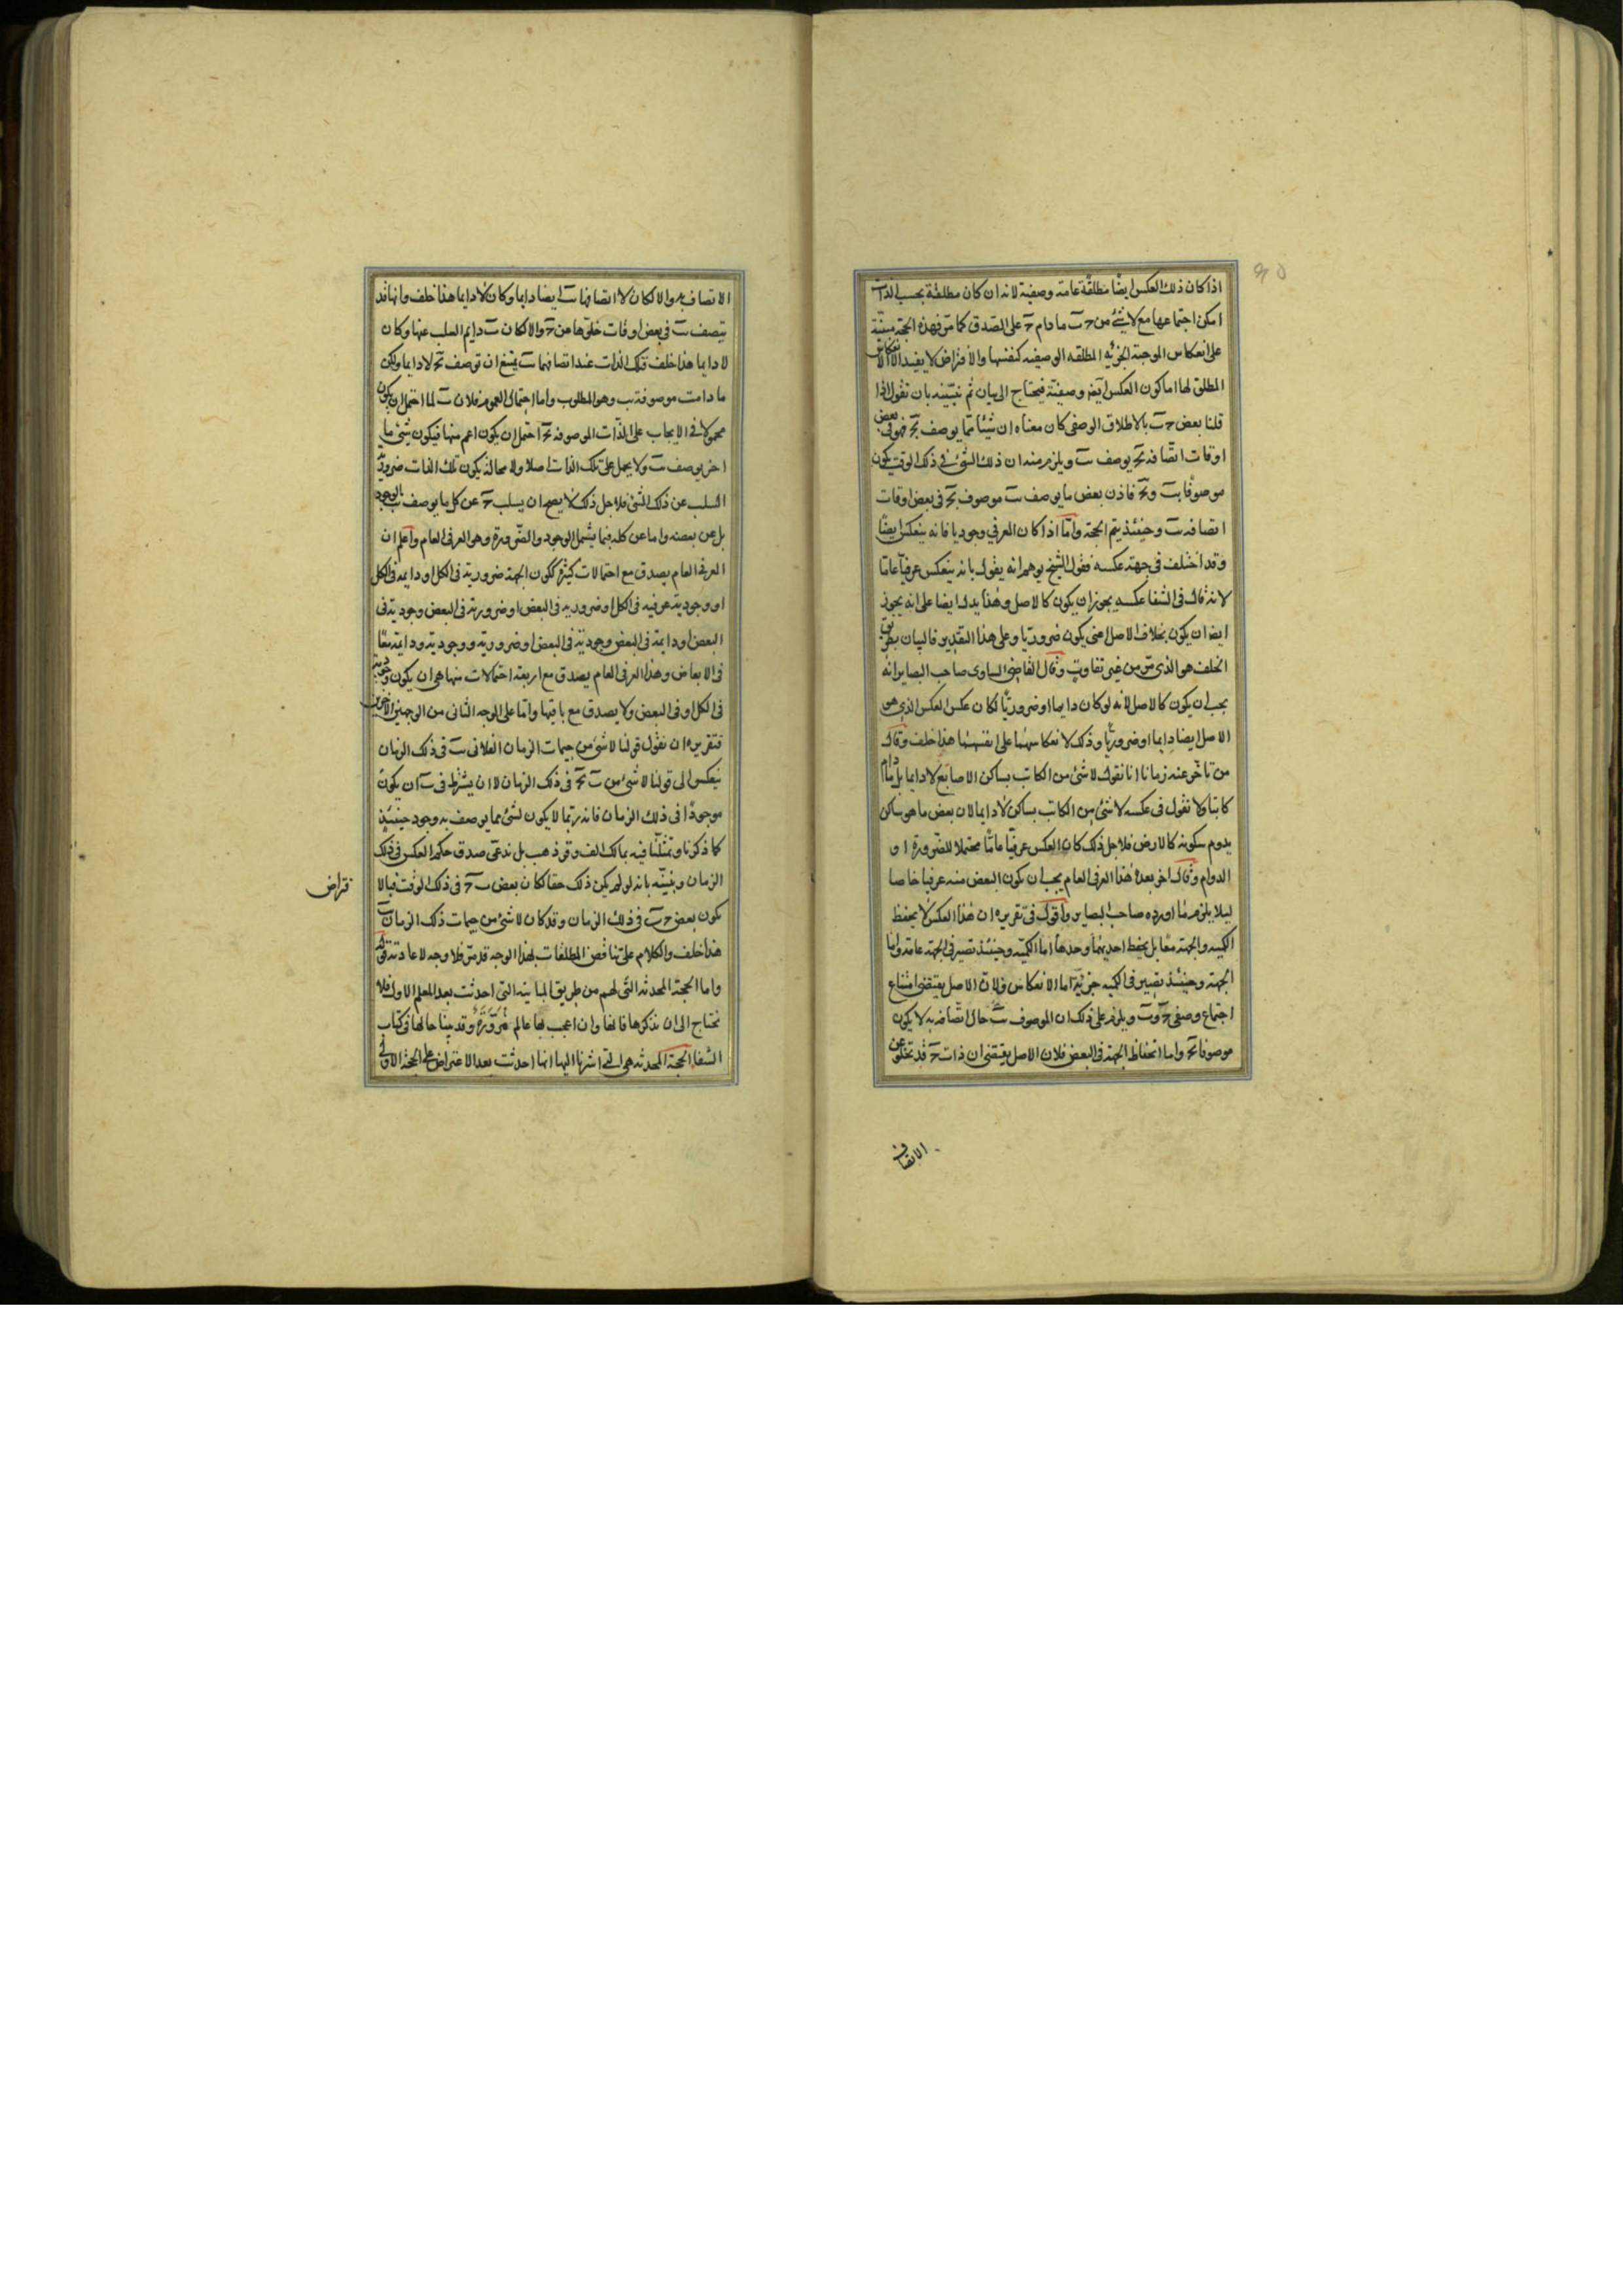 ٩٥
اذا كان ذلك العكس ايضا مطلقة عامة وصفية لانه ان كان مطلقة بحسب الذات
امكن اجتماعها مع لا شئ من حـ ب ما دام حـ على الصدق كما مر فهذه الحجة مبنية
على انعكاس الموجبة الجزئية المطلقه الوصفيه كنفسها والافتراض لا يفيد الا الانعكاس
المطلق لها اما كون العكس ايضا وصفية فيحتاج الى بيان ثم نبينه بان نقول اذا
قلنا بعض حـ ب بالاطلاق الوصفى كان معناه ان شيئا مما يوصف بحـ فهو فى بعض
اوقات اتصافه بحـ يوصف ب ويلزم منه ان ذلك الشئ فى ذلك الوقت يكون
موصوفا بب وبحـ فاذن بعض ما يوصف ب موصوف بحـ فى بعض اوقات
اتصافه ب وحينئذ يتم الحجة واما اذا كان العرفي وجوديا فانه ينعكس ايضا
وقد اختلف فى جهة عكسه فقول الشيخ يوهم انه يقول بانه ينعكس عرفيا عاما
لانه قال فى الشفا عكسه يجوز ان يكون كالاصل وهذا يدل ايضا على انه يجوز
ايضا ان يكون بخلاف الاصل اعنى يكون ضروريا وعلى هذا التقدير فالبيان بطريق
الخلف هو الذى مر من غير تفاوت وقال القاضى الساوى صاحب البصاير انه
يجب ان يكون كالاصل لانه لو كان دايما او ضروريا لكان عكس العكس الذى هو
الاصل ايضا دايما او ضروريا وذلك لانعكاسهما على انفسهما هذا خلف وقال
من تاخر عنه زمانا انا نقول لا شئ من الكاتب بساكن الاصابع لا دايما بل ما دام
كاتبا ولا نقول فى عكسه لا شئ من الكاتب بساكن لا دايما لان بعض ما هو ساكن
يدوم سكونه كالارض فلاجل ذلك كان العكس عرفيا عاما محتملا للضرورة او
الدوام وقال اخر بعده هذا العرفى العام يجب ان يكون البعض منه عرفيا خاصا
ليلا يلزم ما اورده صاحب البصاير واقول فى تقريره ان هذا العكس لا يحفظ
الكمية والجهة معا بل يحفظ احديهما وحدها اما الكمية وحينئذ تصير فى الجهة عامة واما
الجهة وحينئذ يصير فى الكميه جزئية اما الانعكاس فلان الاصل يقتضى امتناع
اجتماع وصفى حـ وب ويلزم على ذلك ان الموصوف ب حال اتصافه به لا يكون
موصوفا بحـ واما انحفاظ الجهة فى البعض فلان الاصل يقتضى ان ذات حـ قد تخلو عن
الاتصاف
الاتصاف به والا لكان لا اتصافها ب ايضا دايما وكان لا دايما هذا خلف وانها قد
يتصف ب فى بعض اوقات خلوها من حـ والا لكان ب دايم السلب عنها وكان
لا دايما هذا خلف فتلك الذات عند اتصافها ب يمتنع ان توصف بحـ لا دايما ولكن
ما دامت موصوفة بب وهو المطلوب واما احتمال العموم فلان ب لما احتمل ان يكون
محمولا فى الايجاب على الذات الموصوفه بحـ احتمل ان يكون اعم منها فيكون شئ ما
اخر يوصف ب ولا يحمل على تلك الذات اصلا ولا محالة يكون تلك الذات ضرورية
السلب عن ذلك الشئ فلاجل ذلك لا يصح ان يسلب حـ عن كل ما يوصف ب بالوجود
بل عن بعضه واما عن كله فبما يشمل الوجود والضرورة وهو العرفى العام واعلم ان
العرفى العام يصدق مع احتمالات كثيرة ككون الجهة ضرورية فى الكل او دايمه فى الكل
او وجودية عرفيه فى الكل او ضروريه فى البعض او ضرورية فى البعض وجودية فى
البعض او دايمة فى البعض وجودية فى البعض او ضرورية ووجودية ودايمة معا
فى الابعاض وهذا العرفى العام يصدق مع اربعة احتمالات منها هى ان يكون وجودية
فى الكل او فى البعض ولا يصدق مع باقيها واما على الوجه الثانى من الوجهين الاخرين
فتقريره ان نقول قولنا لا شئ من جيمات الزمان الفلانى ب فى ذلك الزمان
ينعكس الى قولنا لا شئ من ب حـ فى ذلك الزمان لا ان يشترط فى ب ان يكون
موجودا فى ذلك الزمان فانه ربما لا يكون لشئ مما يوصف به وجود حينئذ
كما ذكرنا وتمثلنا فيه بمالك الف وقر ذهب بل ندعى صدق حكم العكس فى ذلك
الزمان ونبينه بانه لو لم يكن ذلك حقا لكان بعض ب حـ فى ذلك الوقت فبالا
فتراض
يكون بعض حـ ب فى ذلك الزمان وقد كان لا شئ من جيمات ذلك الزمان ب
هذا خلف والكلام على تناقض المطلقات بهذا الوجه قد مر فلا وجه لاعادته قوله
واما الحجة المحدثه التى لهم من طريق المباينه التى احدثت بعد المعلم الاول فلا
نحتاج الى ان نذكرها فانها وان اعجب بها عالم مزورة وقد بينا حالها فى كتاب
الشفا الحجة المحدثه هى التى اشرنا اليها انها احدثت بعد الاعتراض على الحجة الاولى